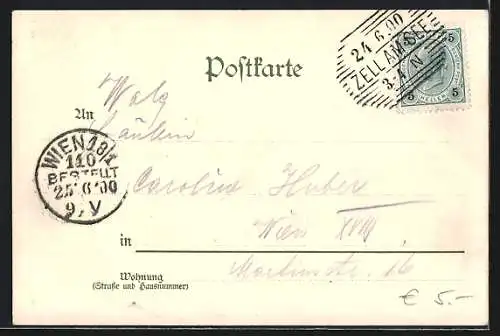 24.6.00
ZELL AM SEE
3-4 N
5
5 HELLER 5
Postkarte
An
Fräulein
WIEN 18/1
110
BESTELLT
25 6 00
9.V
Caroline Huber
Wien XVIII
in
Martinstr. 16
Wohnung
(Straße und Hausnummer)
€ 5.-